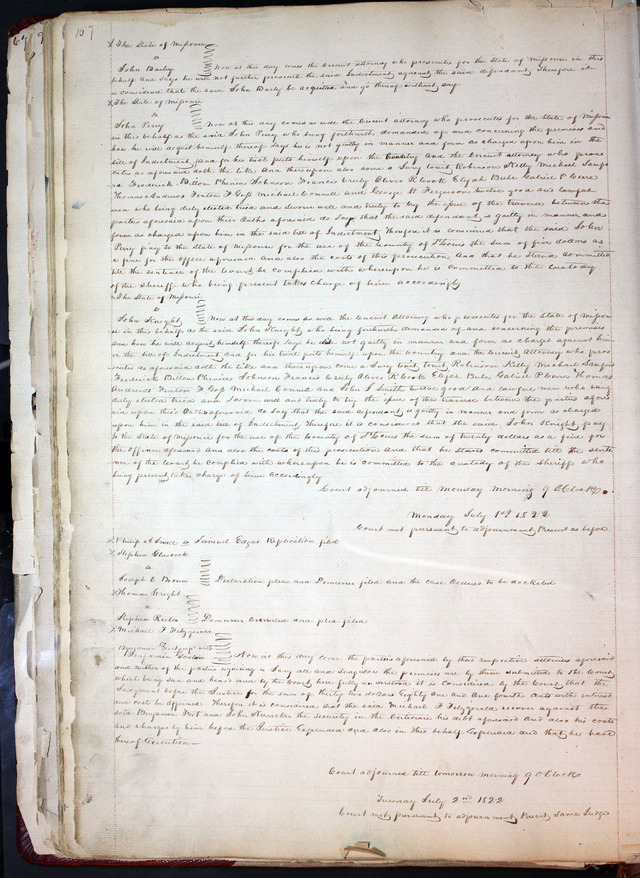 157
The State of Missouri
vs
John Baily Now at this day comes the circuit attorney who prosecutes for the State of Missouri in this
behalf and says he will not further prosecute the said Indictment against the said defendant Therefore it
is considered that the said John Baily be acquitted and go thereof without day
The State of Missouri
vs
John Perry Now at this day comes as well the Circuit Attorney who prosecutes for the State of Missouri
in this behalf as the said John Perry who being forthwith demanded of and concerning the premises and
how he will acquit himself thereof says he is not guilty in manner and form as charged upon him in the
bill of Indictment and for his trial puts himself upon the Country and the Circuit attorney who prose
cutes as aforesaid doth the like And thereupon also came a Jury to wit Robinson Kelly Michael Sanfo
rd Frederick Billon Phenias Johnson Francis Creely Oliver Rbook Elijah Bebe Gabriel
Thomas Andrews Fenton F Goss Michael Connell and George W Ferguson twelve good and lawful
men who being duly elected tried and sworn well and truly to try the issue of this traverse between the
parties aforesaid upon their Oaths aforesaid do say that the said defendant is guilty in manner and
form as charged upon him in the said bill of Indictment Therefore it is considered that the said John
Perry pay to the State of Missouri for the use of the County of St Louis the sum of five dollars as
a fine for the offence aforesaid and also the costs of this prosecution And that he stand committed
till the sentence of the Court be complied with whereupon he is committed to the custody
of the sheriff who being present takes charge of him accordingly
The State of Missouri
vs
John Knight Now at this day comes as well the Circuit Attorney who prosecutes for the State of Missouri
in this behalf as the said John Knight who being forthwith demanded of and concerning the premises
and how he will acquit himself thereof says he is not guilty in manner and form as charged against him
in the bill of Indictment and for his trial puts himself upon the country and the circuit Attorney who pros
ecutes as aforesaid doth the like And thereupon came a Jury to wit Robinson Kelly Michael Sanford
Frederick Billon Phenias Johnson Francis Creely Oliver Rbook Elijah Bebe Gabriel Thomas
Andrews Fenton F Goss Michael Connell and John Smith twelve good and lawful men who being
duly elected tried and sworn well and truly to try the issue of this traverse between the parties afores
aid upon their Oaths aforesaid do say that the said defendant is guilty in manner and form as charged
upon him in the said bill of Indictment Therefore it is considered that the said John Knight pay
to the State of Missouri for the use of the County of St Louis the sum of twenty dollars as a fine for
the offence aforesaid And also the costs of this prosecution and that he stand committed till the sente
nce of the court be complied with whereupon he is committed to the custody of the sheriff who
being present takes charge of him accordingly
Court adjourned till Monday Morning 9 OClock
Monday July 1st 1822
Court met pursuant to adjournment Present as before
Philip A vs Samuel Edgar Replication filed
Stephen Glascock
vs
Joseph C Brown Declaration pleas and Demurrer filed and the case Ordered to be docketed
Thomas Wright
vs
Stephen Rector Demurrer Overruled and plea filed
Michael F Fitzgerald
vs
Benjamin Now at this day come the parties aforesaid by their respective attornies aforesaid
and neither of the parties requiring a Jury all and singular the premises are by them submitted to the Court
which being seen and heard and by the Court here fully understood it is considered by the Court that the
Judgment before the Justice for the sum of thirty two dollars Eighty One and One fourth Cents with interest
and costs be affirmed Therefore it is considered that the said Michael F Fitzgerald recover against the
said Benjamin and John the security in the Certiorari his debt aforesaid and also his costs
and charges by him before the Justice Expended and also in this behalf Expended and that he have
thereof Execution
Court adjourned till tomorrow morning 9 OClock
Tuesday July 2nd 1822
Court met pursuant to adjournment Present Same Judge